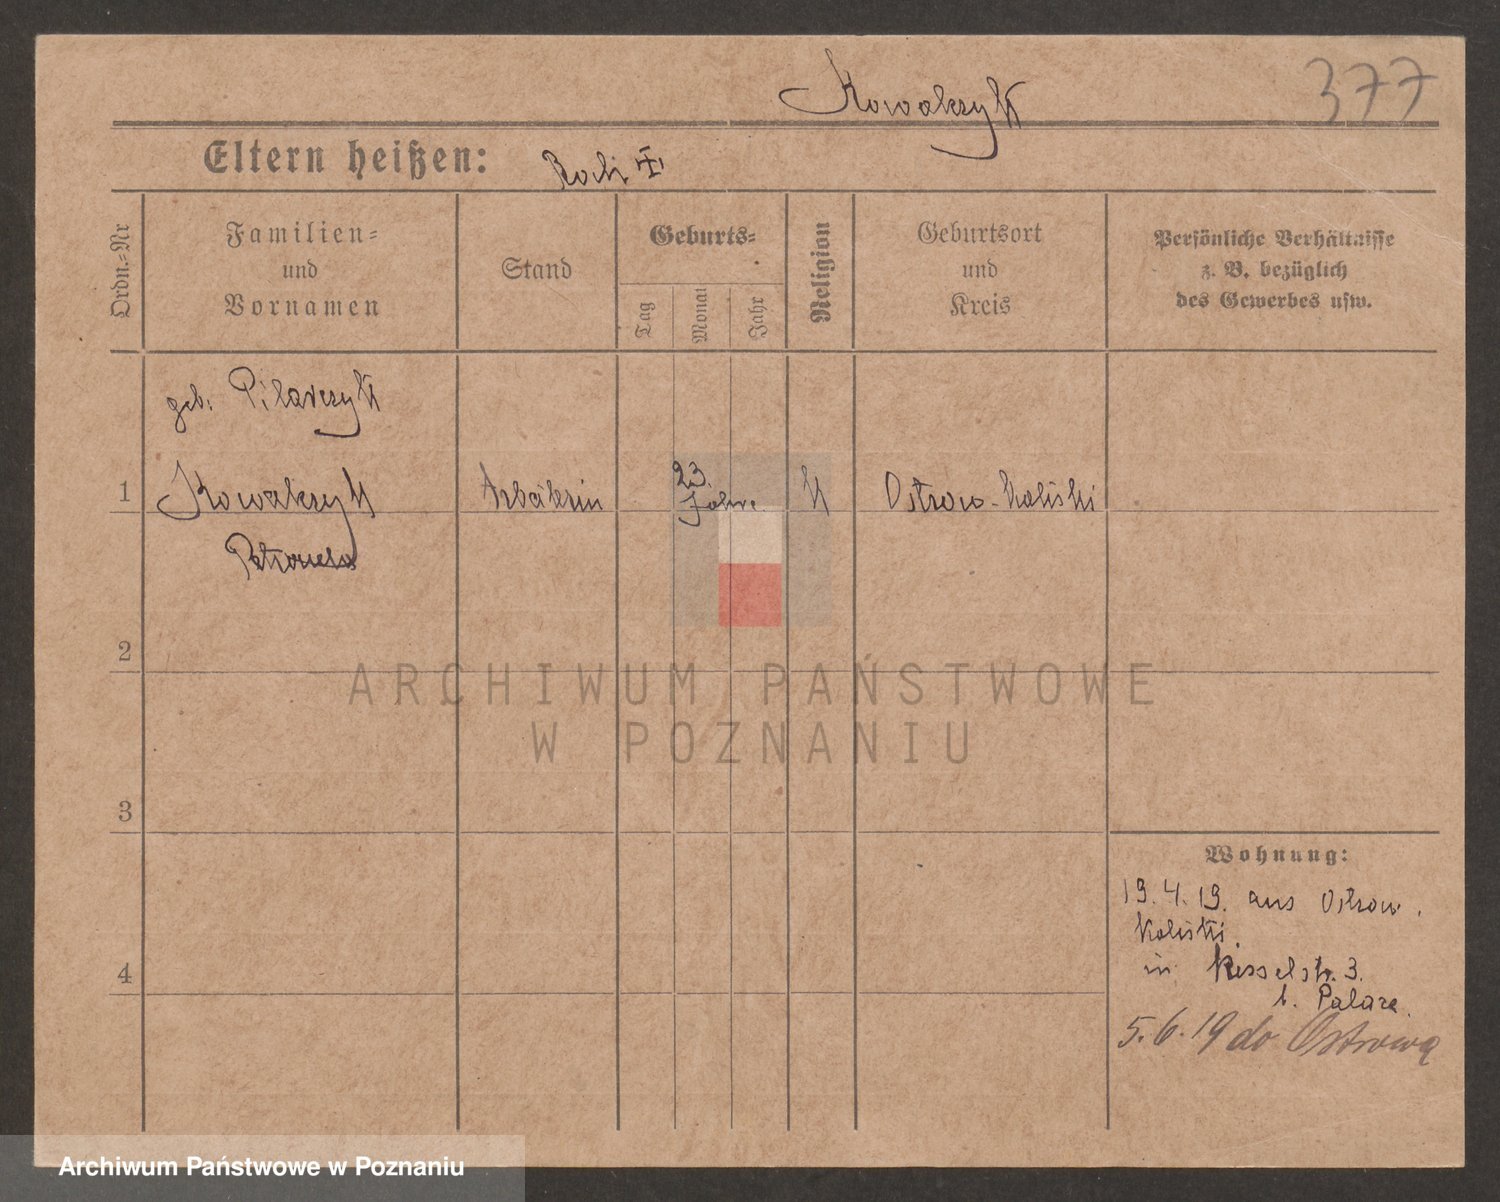 Kowalczyk
377
Eltern heißen: Rochi
Ordn.-Nr
Familien-
und
Vornamen
Stand
Geburts-
Tag
Monat
Jahr
Religion
Geburtsort
und
Kreis
Persönliche Verhältnisse
z. B. bezüglich
des Gewerbes usw.
geb. Pilarczyk
1 Kowalczyk Arbeiterin 23. Jahre K Ostrow-Kaliski
Petronela
2
3
4
Wohnung:
19.4.19. aus Ostrow.
Kaliski.
in Kesselstr. 3.
b. Palare.
5.6.19 do Ostrową
ARCHIWUM PAŃSTWOWE
W POZNANIU
Archiwum Państwowe w Poznaniu